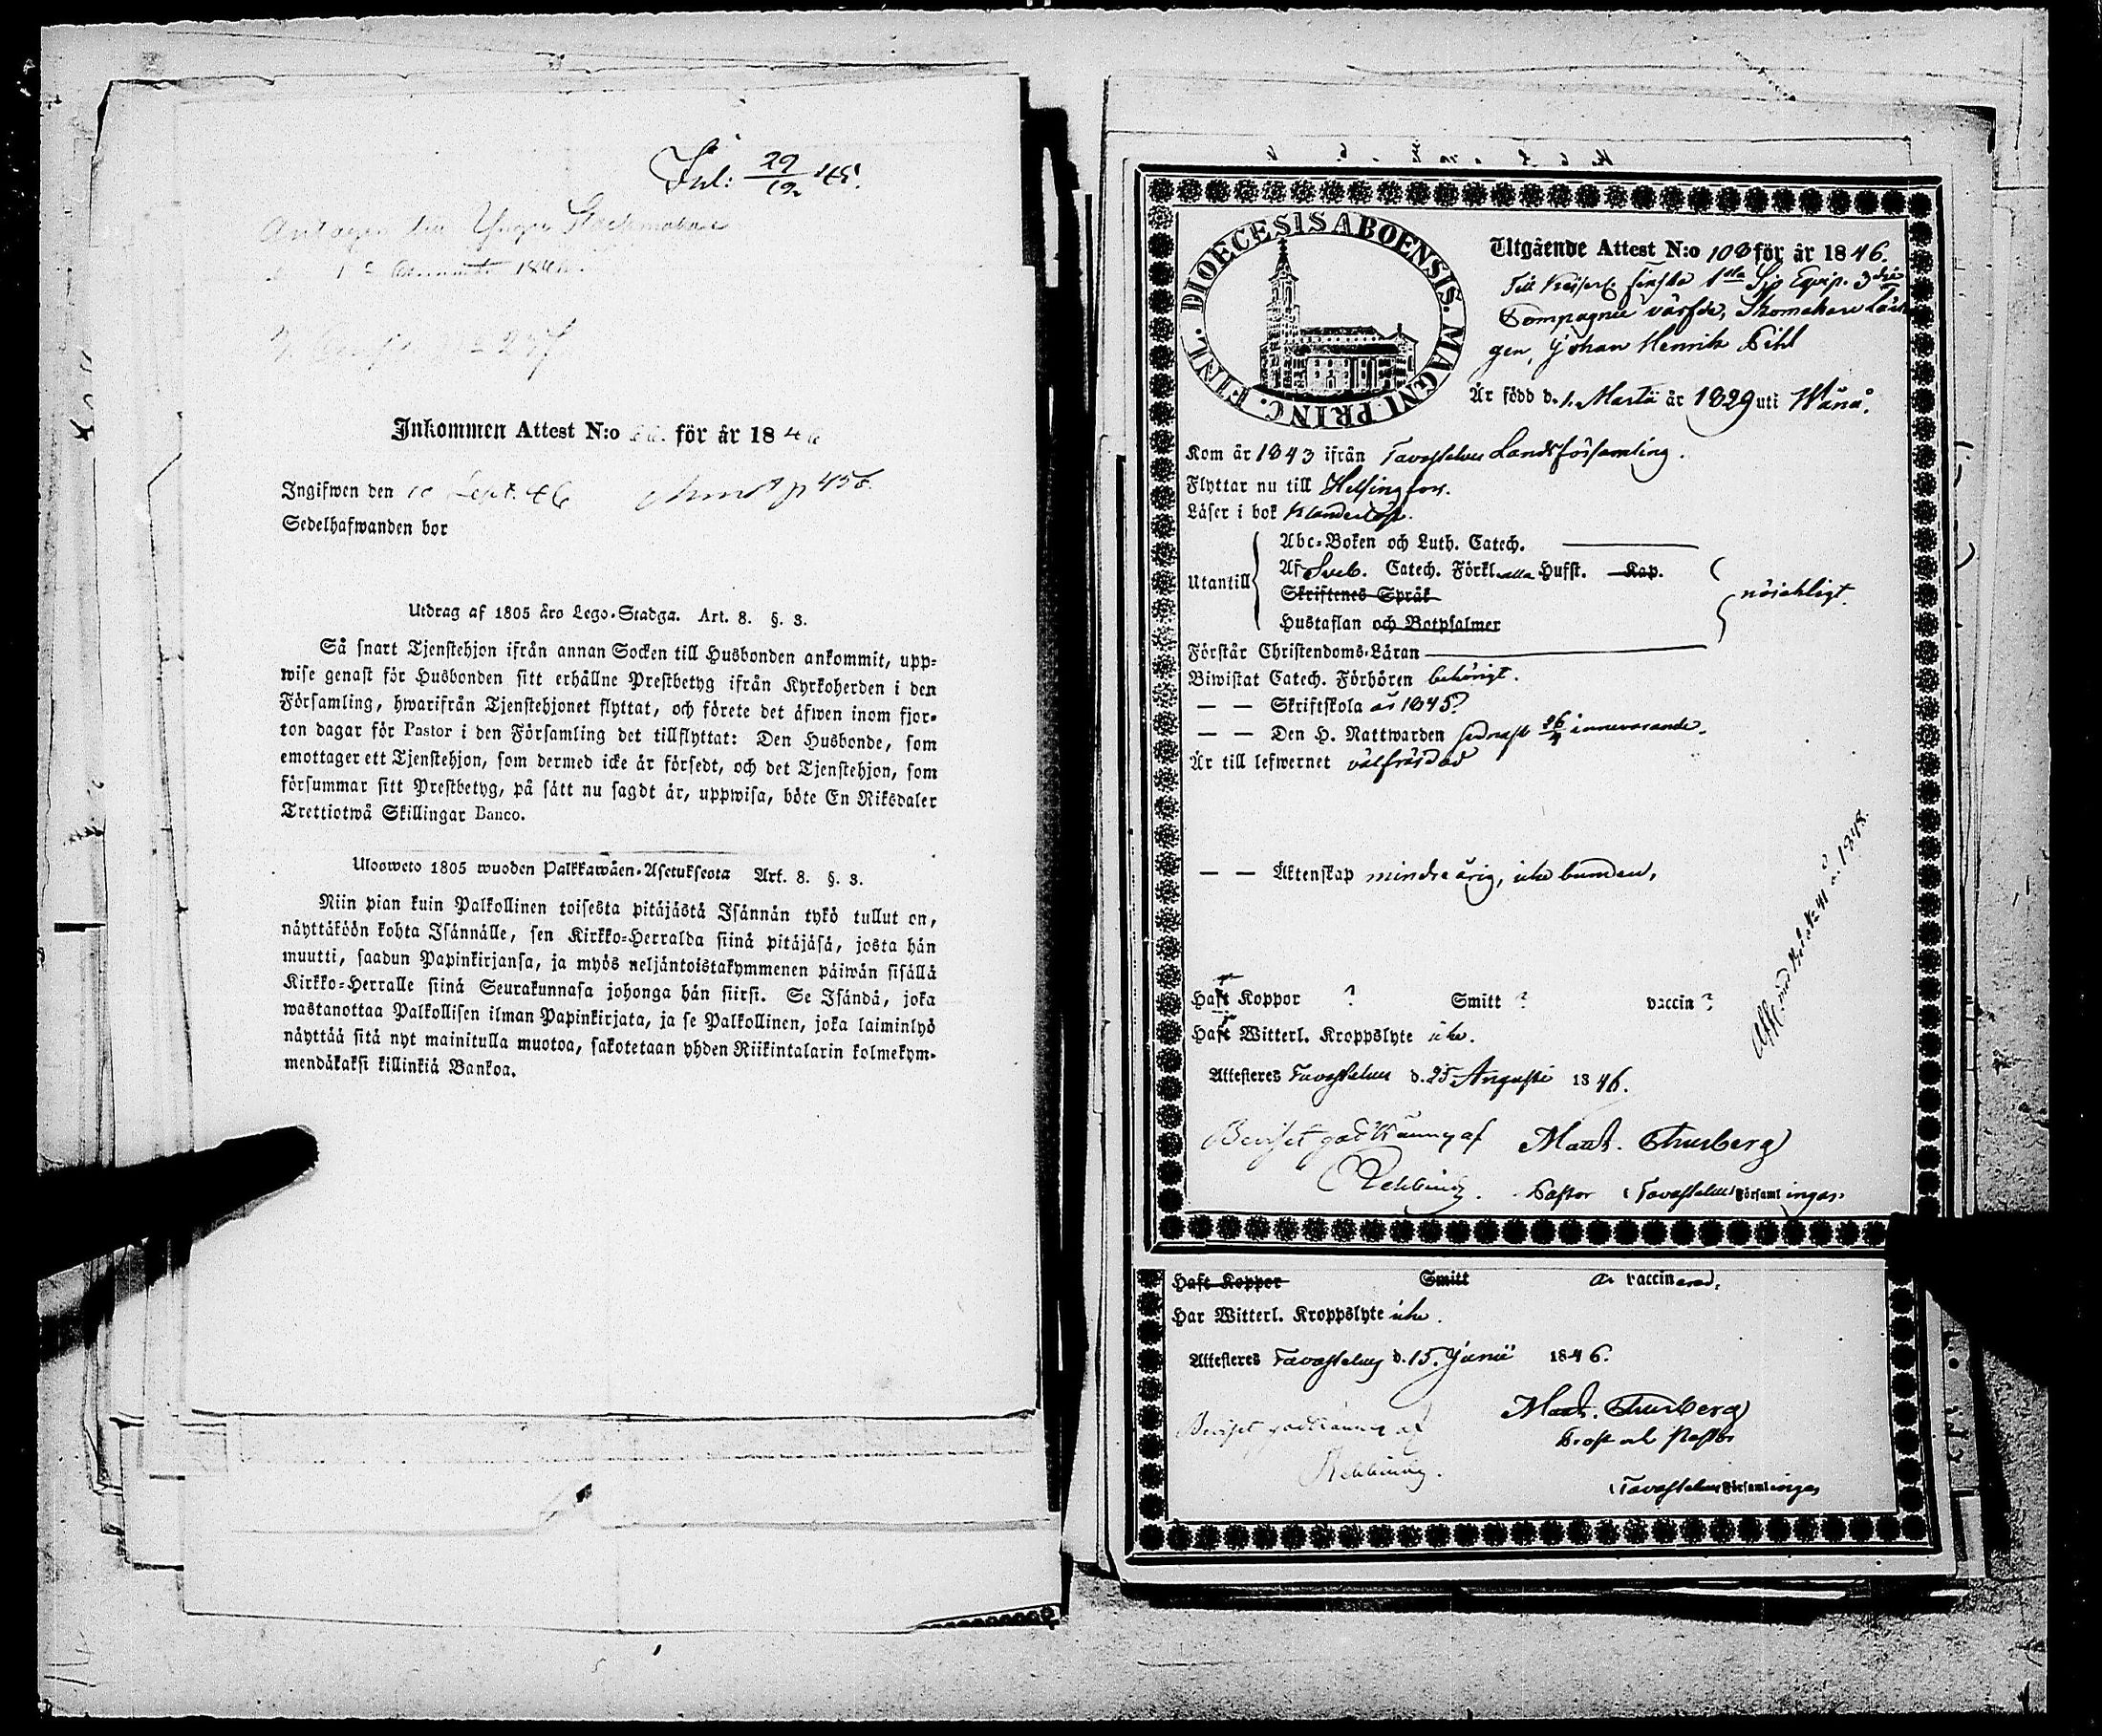 Inl: 29/12 45.
Antagen
1846.
237
Inkommen Attest N:o för år 1846
Ingifwen den 10 Sept. 46 p 456.
Sedelhafwanden bor
Utdrag af 1805 års Lego-Stadga. Art. 8. §. 3.
Så snart Tjenstehjon ifrån annan Socken till Husbonden ankommit, upp-
wise genast för Husbonden sitt erhållne Prestbetyg ifrån Kyrkoherden i den
Församling, hwarifrån Tjenstehjonet flyttat, och förete det äfwen inom fjor-
ton dagar för Pastor i den Församling det tillflyttat: Den Husbonde, som
emottager ett Tjenstehjon, som dermed icke är försedt, och det Tjenstehjon, som
försummar sitt Prestbetyg, på sätt nu sagdt är, uppwisa, böte En Riksdaler
Trettiotwå Skillingar Banco.
Ulosweto 1805 wuoden Palkkawäen-Asetuksesta Art. 8. §. 3.
Niin pian kuin Palkollinen toisesta pitäjästä Isännän tykö tullut on,
näyttäköön kohta Isännälle, sen Kirkko-Herralda siinä pitäjäsä, josta hän
muutti, saadun Papinkirjansa, ja myös neljäntoistakymmenen päiwän sisällä
Kirkko-Herralle siinä Seurakunnasa johonga hän siirsi. Se Isändä, joka
wastanottaa Palkollisen ilman Papinkirjata, ja se Palkollinen, joka laiminlyö
näyttää sitä nyt mainitulla muotoa, sakotetaan yhden Riikintalarin kolmekym-
mendäkaksi killinkiä Bankoa.
DIOECESIS ABOENSIS. MAGNI PRINC. FINL.
Utgående Attest N:o 108 för år 1846.
Till Keiserl. finska 1sta Sjö Equip. 3dje
Compagnie värfde, Skomakare Lärlin
gen, Johan Henrik Pihl
Är född d. 1. Martii år 1829 uti Wånå.
Kom år 1843 ifrån Tavastehus Landsförsamling.
Flyttar nu till Helsingfors.
Läser i bok klanderlöst.
Utantill
Abc-Boken och Luth. Catech.
Af Sveb. Catech. Förkl. alla Hufst. Kap.
Skriftenes Språk
Hustaflan och Botpsalmer
nöjaktigt.
Förstår Christendoms-Läran
Biwistat Catech. Förhören behörigt.
— — Skriftskola år 1845?
— — Den H. Nattwarden sednast 26/4 innevarande.
Är till lefwernet välfräjdad
— — Äktenskap minderårig, icke bunden.
Haft Koppor ? Smitt ? vaccin ?
Haft Witterl. Kroppslyte icke.
å. 1848.
Attesteres Tavastehus d. 25 Augusti 1846.
Beviset godkännes af Math. Thurberg
Rehbinder. Pastor i Tavastehus Församlingar
Haft Koppor Smitt är vaccinerad.
Har Witterl. Kroppslyte icke.
Attesteres Tavastehus d. 15. Junii 1846.
Math. Thurberg
Beviset godkännes af
Prost och Pastor
Rehbinder.
i Tavastehus Församlingar